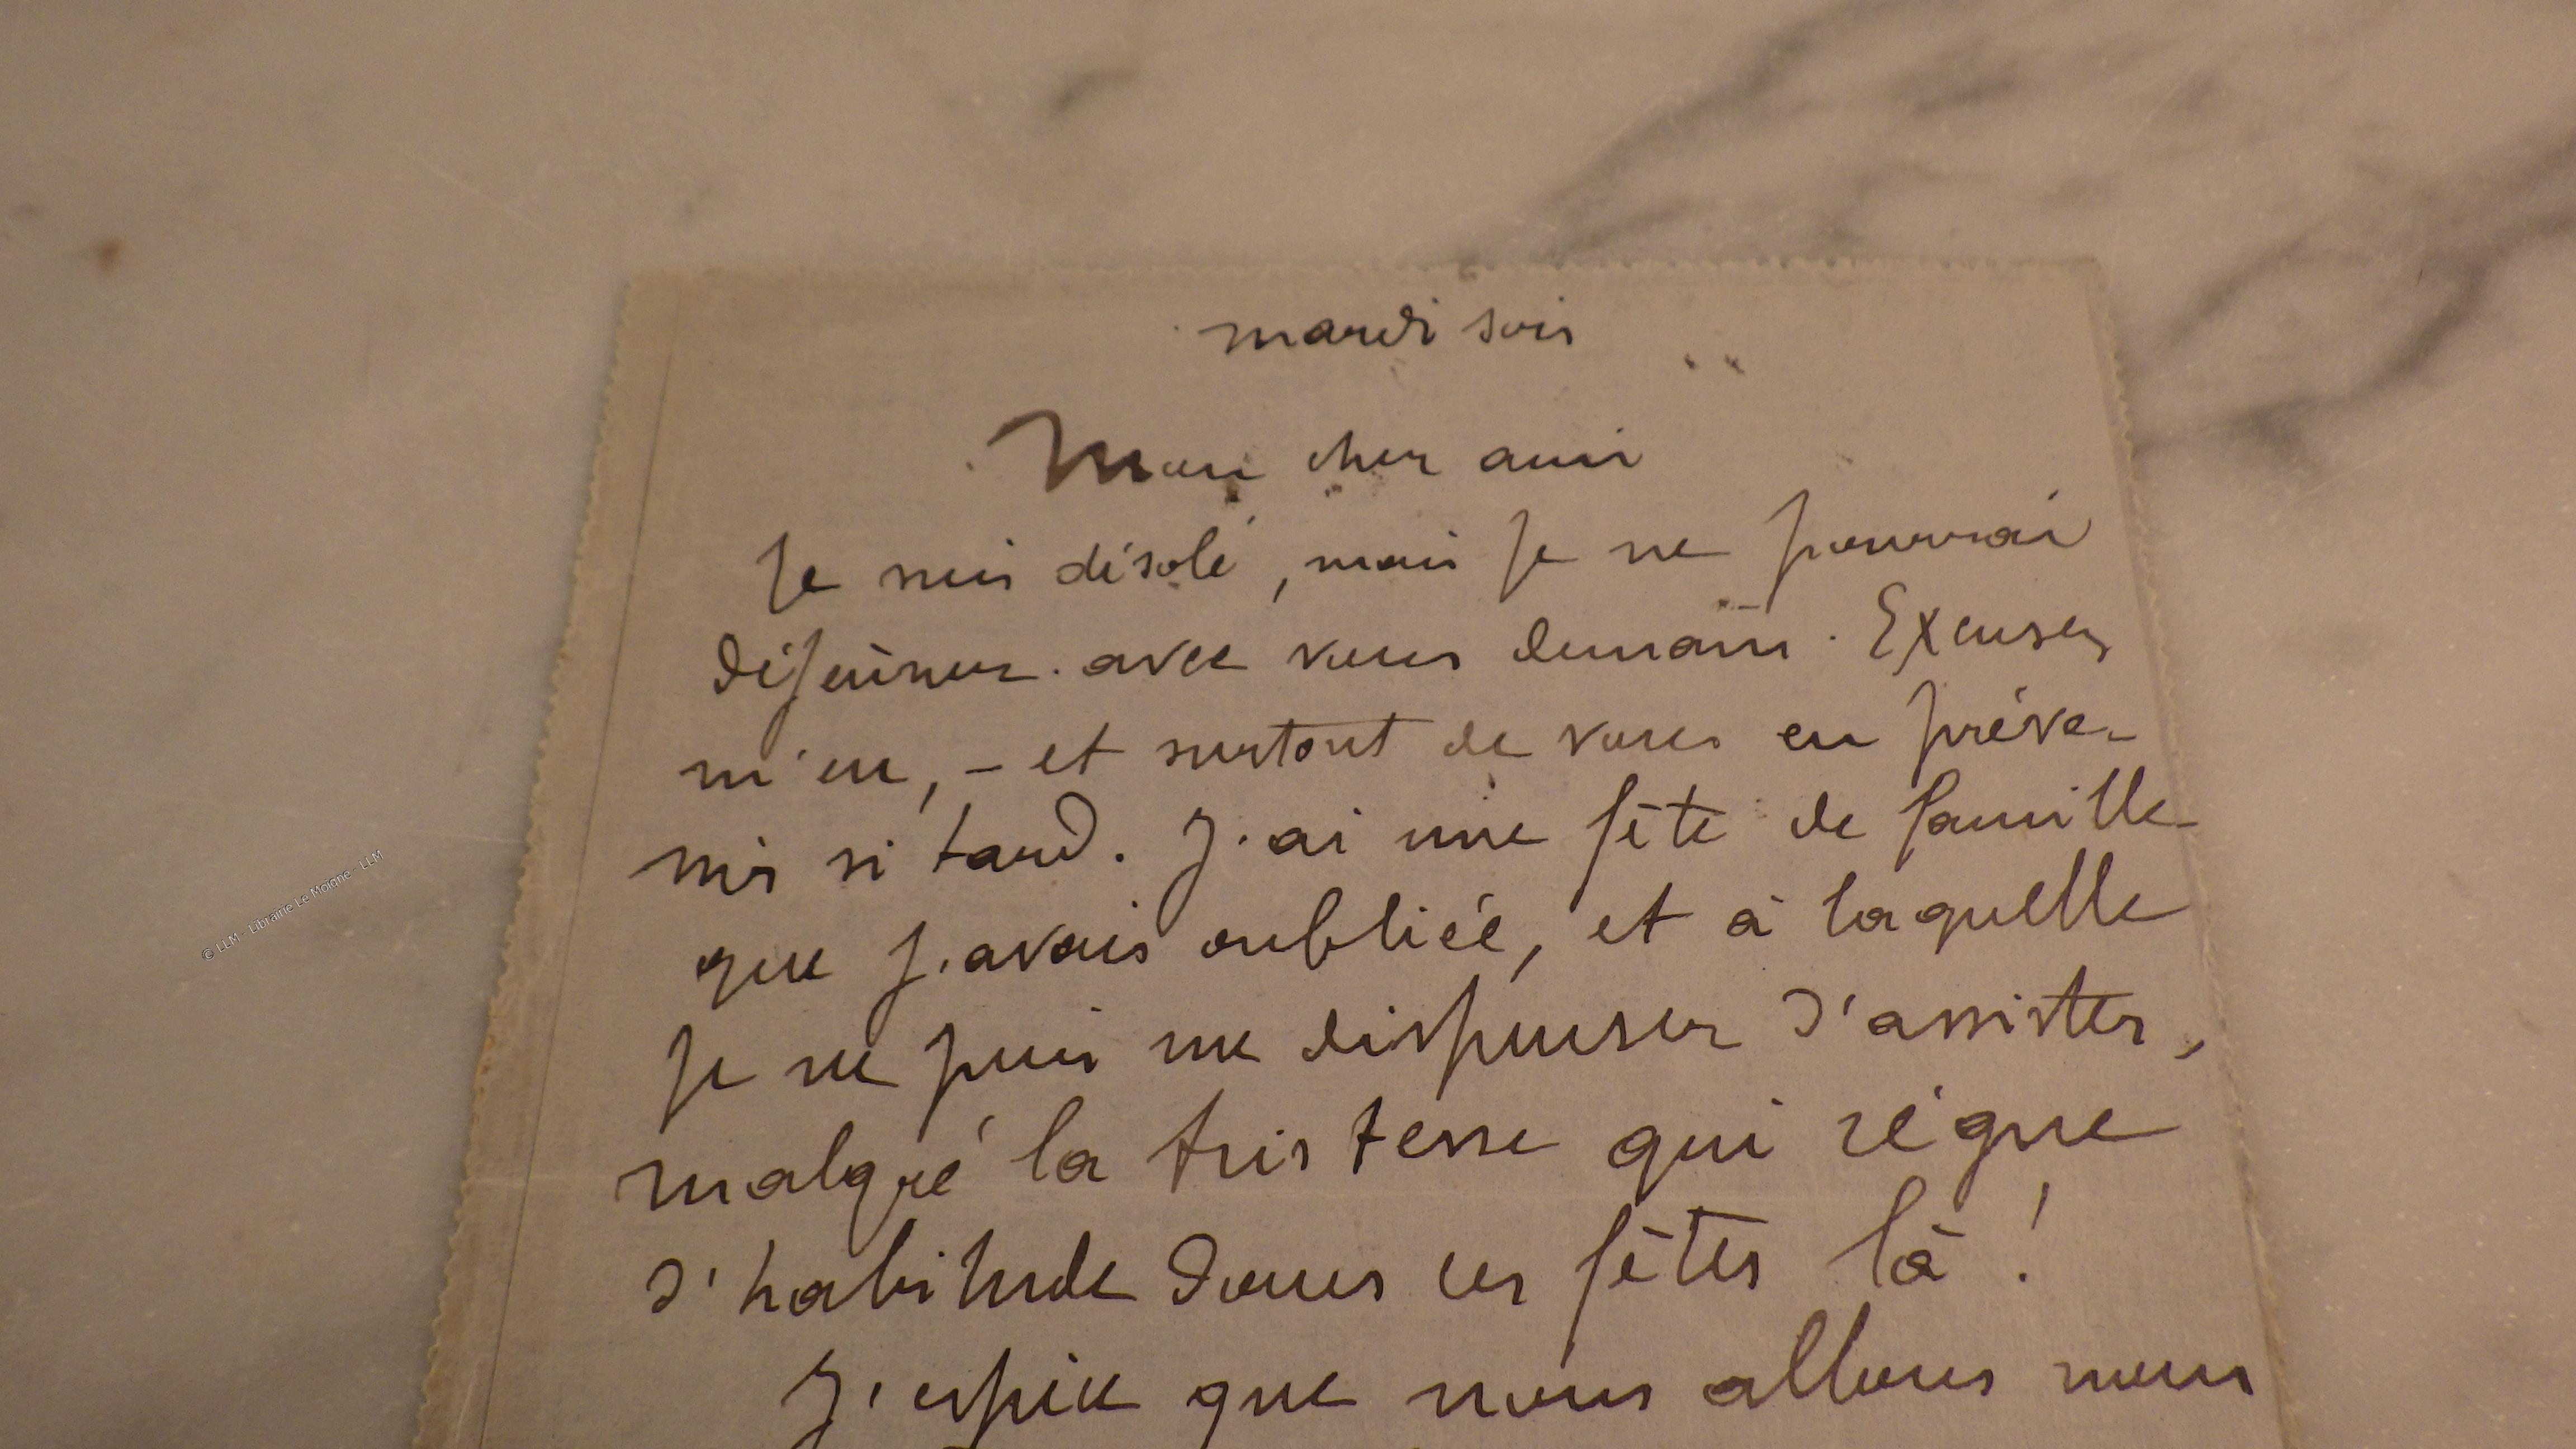 mardi soir
Mon cher ami
Je suis désolé, mais je ne pourrai
déjeûner avec vous demain. Excusez
m'en, – et surtout de vous en préve-
nir si tard. J'ai une fête de famille
que j'avais oubliée, et à laquelle
je ne puis me dispenser d'assister,
malgré la tristesse qui règne
d'habitude dans ces fêtes là !
J'espère que nous allons nous
© LLM - Librairie Le Moigne - LLM